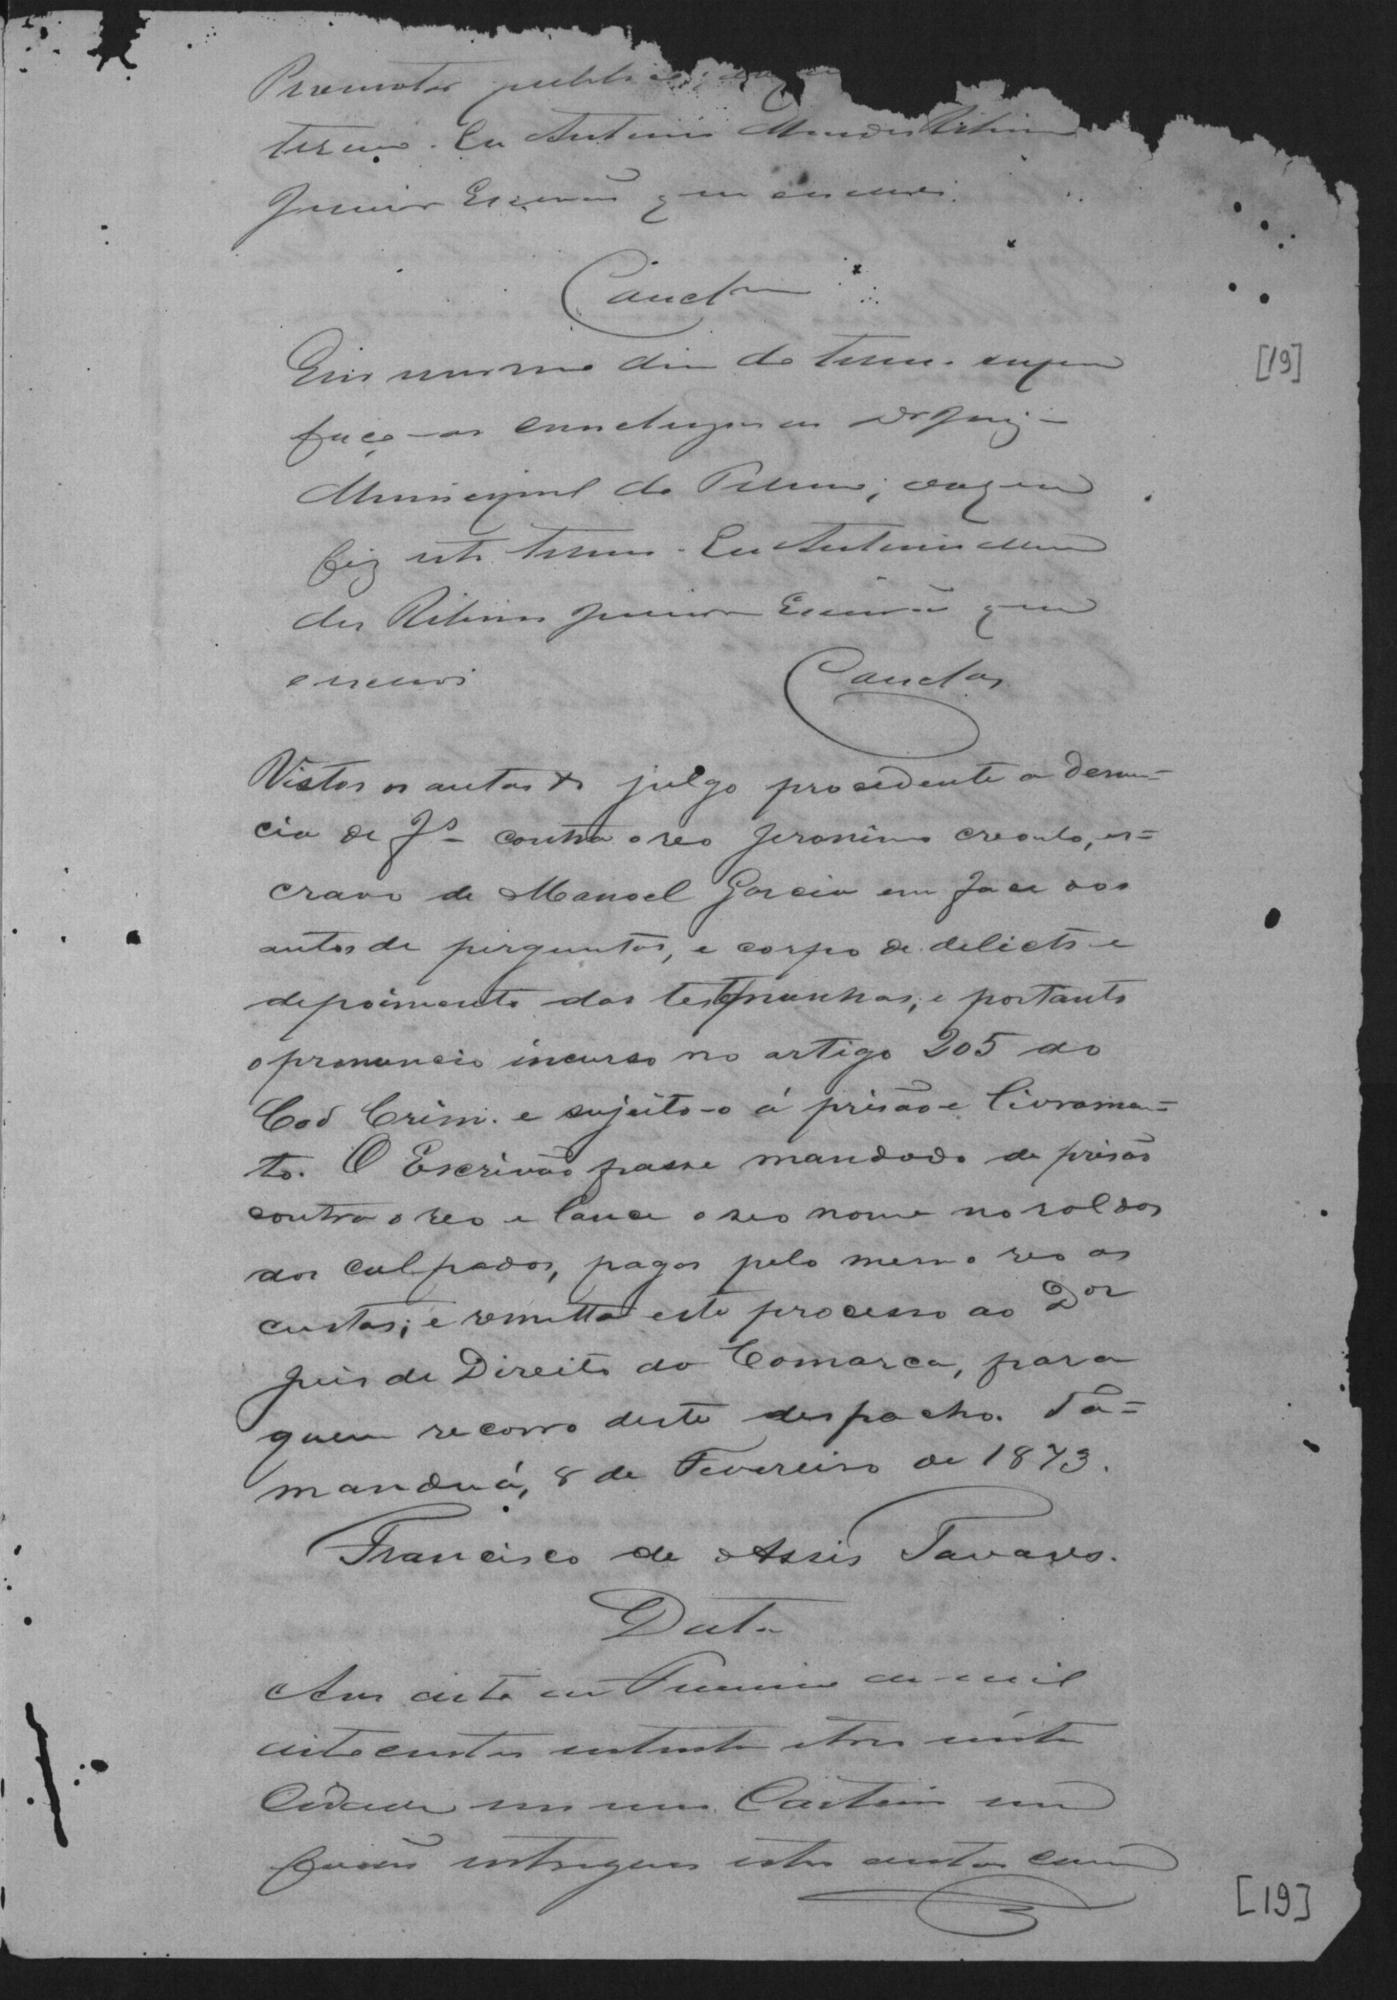 Promotor publico; do que
termo. Eu Antonio Mendes Ribeiro
Junior Escrivão que escrevi.
Conclm
Em mesmo dia do termo supra
faço-os conclusos ao Dr Juiz
Municipal do Termo; do que
fiz este termo. Eu Antonio Men
des Ribeiro Junior Escrivão que
escrevi
Conclos
[19]
Vistos os autos &. julgo procedente a denun=
cia de f.s contra o reo Jeronimo creoulo, es=
cravo de Manoel Garcia em face dos
autos de perguntas, e corpo de delicto e
depoimento das testemunhas, e portanto
o pronuncio incurso no artigo 205 do
Cod Crim. e sujeito-o á prisão e livramen=
to. O Escrivão passe mandado de prisão
contra o reo e lance o seo nome no rol dos
dos culpados, pagas pelo mesmo reo as
custas; e remetta este processo ao Dor
Juis de Direito da Comarca, para
quem recorro deste despacho. Ta=
manduá, 8 de Fevereiro de 1873.
Francisco de Assis Tavares.
Data
Aos oito de Fevereiro de mil
oitocentos setenta e tres nesta
Cidade em meu Cartorio me
forão entregues estes autos com
[19]